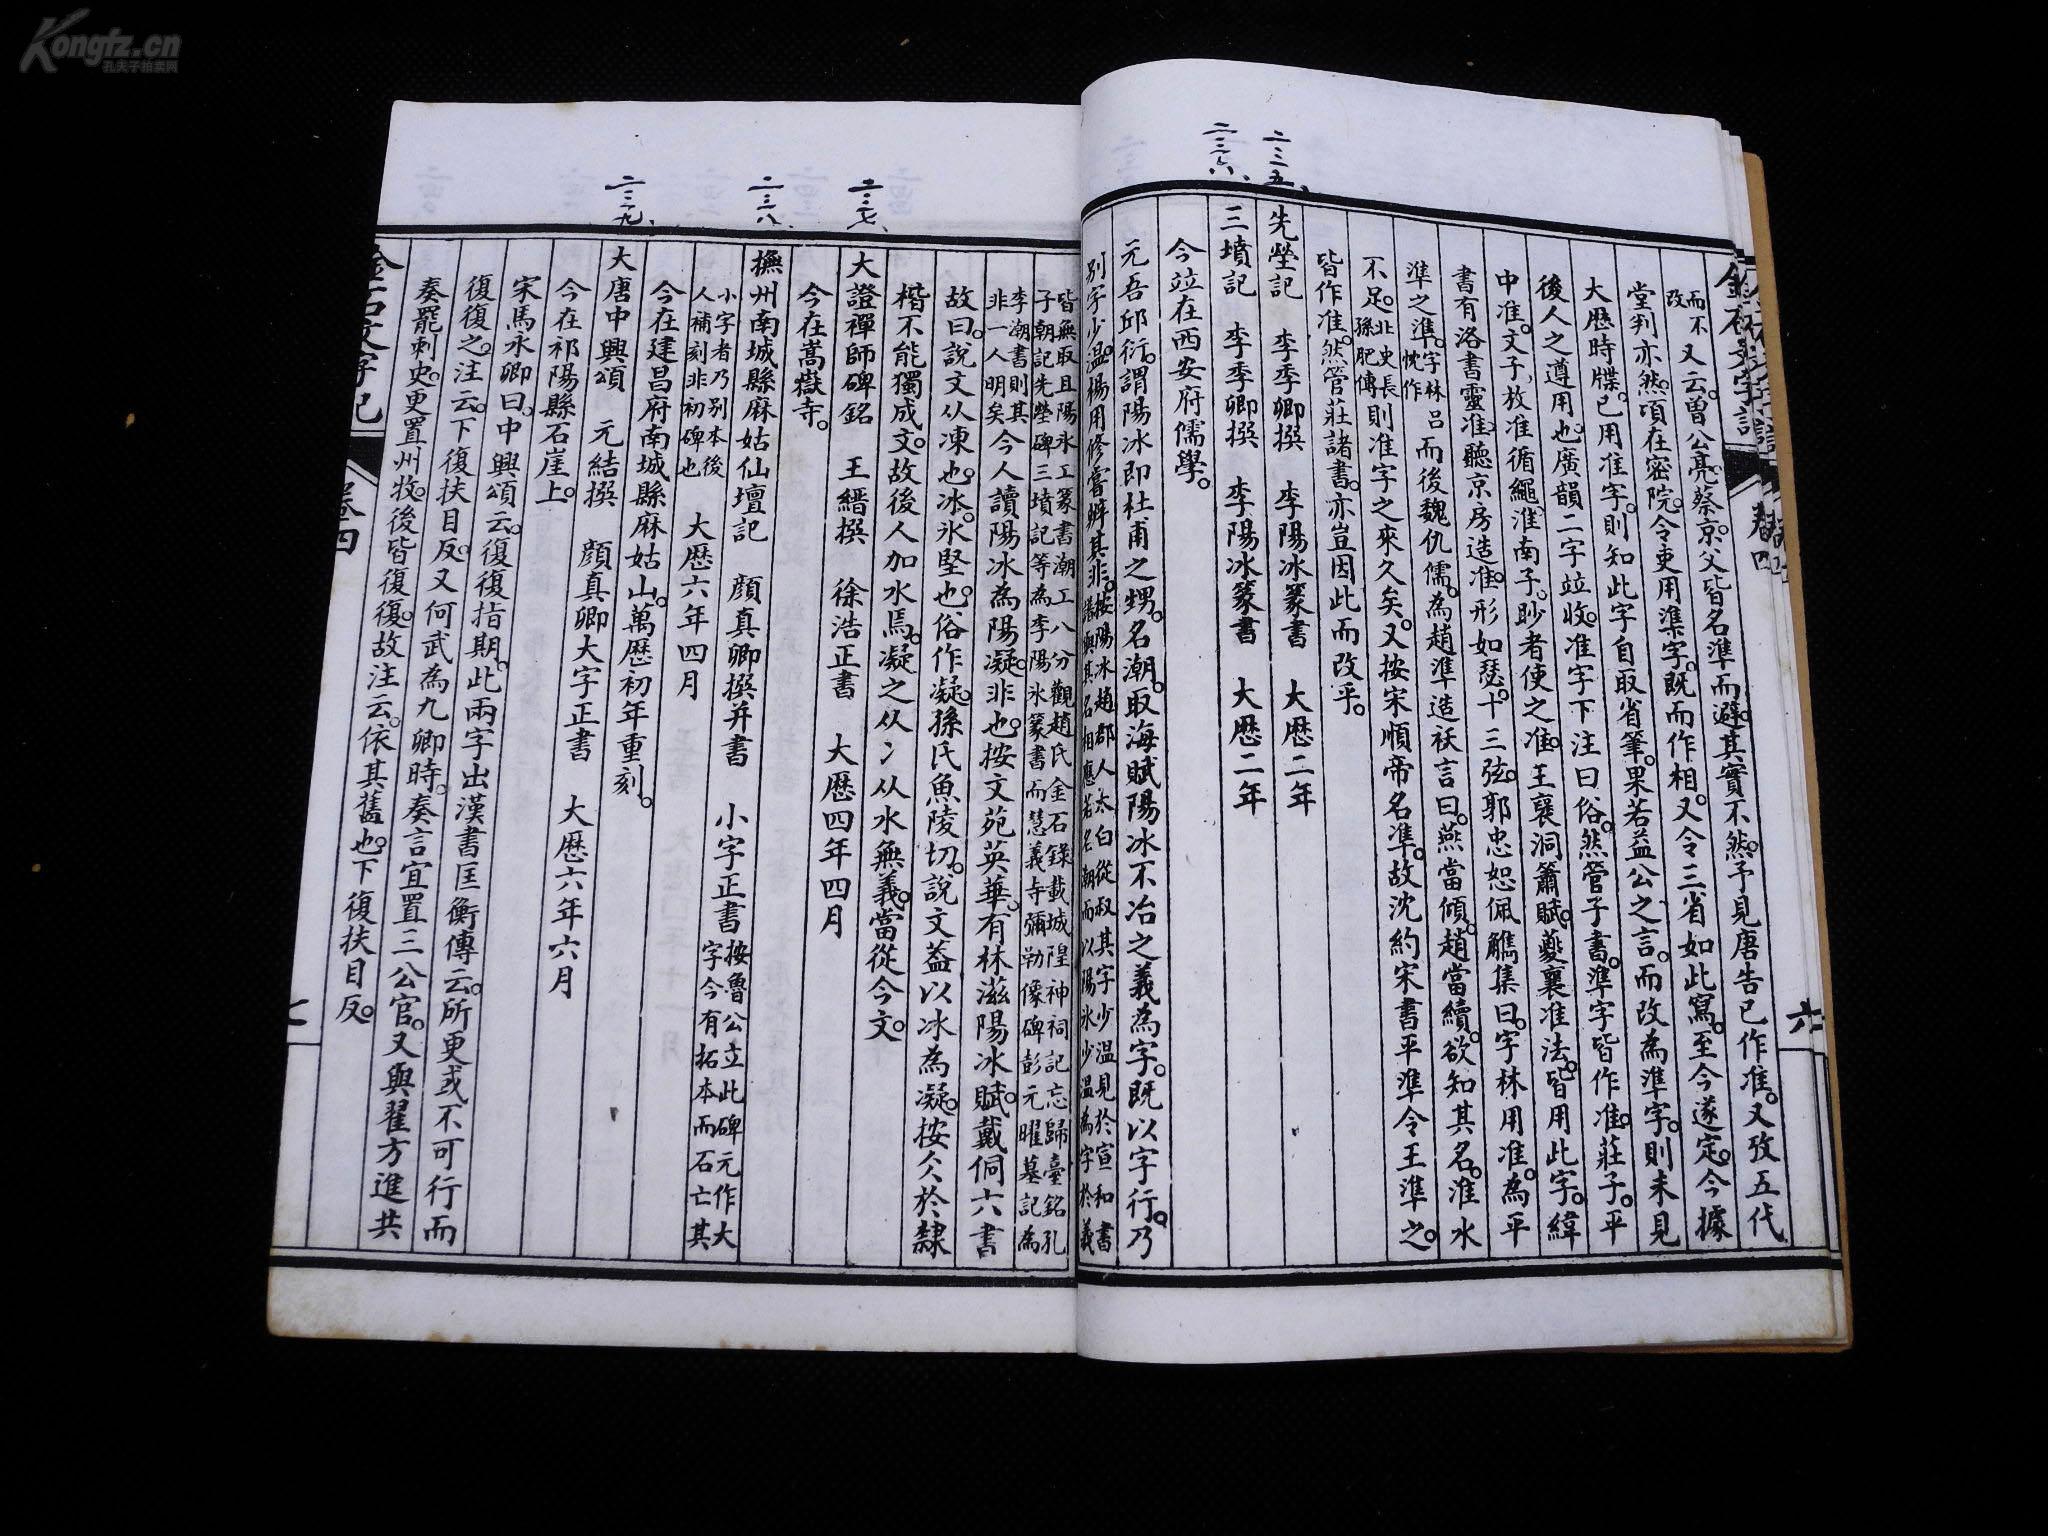 Kongfz.cn
孔夫子拍卖网
二三五、
二三六、
金石文字記 卷四
六
而不改又云。曽公亮。蔡京。父皆名準而避。其實不然。予見唐告已作准。又攷五代
堂判亦然。頃在密院。令吏用準字。既而作相。又令三省如此寫。至今遂定。今據
大歷時牒。已用准字。則知此字自取省筆。果若益公之言。而改為準字。則未見
後人之遵用也。廣韻二字竝收。准字下注曰俗。然管子書。準字皆作准。莊子。平
中准。文子。放准循繩。淮南子。眇者使之准。王襄洞簫賦。夔襄准法。皆用此字。緯
書有洛書靈准聽。京房造准。形如瑟。十三弦。郭忠恕佩觿集曰。字林用准。為平
準之準。字林忱作吕而後魏仇儒。為趙準造祅言曰。燕當傾。趙當續。欲知其名。淮水
不足。北史長孫肥傳則准字之來久矣。又按宋順帝名準。故沈約宋書平準令王準之。
皆作准。然管莊諸書。亦豈因此而改乎。
先塋記 李季卿撰 李陽冰篆書 大歷二年
三墳記 李季卿撰 李陽冰篆書 大歷二年
今竝在西安府儒學。
元吾邱衍。謂陽冰即杜甫之甥。名潮。取海賦陽冰不冶之義為字。既以字行。乃
別字少溫。楊用修嘗辨其非。按陽冰趙郡人太白從叔其字少溫見於宣和書譜與其名相應若名潮而以陽冰少溫為字於義
二三七、
二三八、
二三九、
皆無取且陽冰工篆書潮工八分觀趙氏金石錄載城隍神祠記忘歸臺銘孔子朝記先塋碑三墳記等為李陽冰篆書而慧義寺彌勒像碑彭元曜墓記為
李潮書則其非一人明矣今人讀陽冰為陽凝。非也。按文苑英華。有林滋陽冰賦。戴侗六書
故曰。說文从凍也。冰。氷堅也。俗作凝。孫氏魚陵切。說文蓋以冰為凝。按仌於隸
楷不能獨成文。故後人加水焉。凝之从冫从水無義。當從今文。
大證禪師碑銘 王縉撰 徐浩正書 大歷四年四月
今在嵩嶽寺。
撫州南城縣麻姑仙壇記 顔真卿撰并書 小字正書按魯公立此碑元作大字今有拓本而石亡其
小字者乃别本後人補刻非初碑也 大歷六年四月
今在建昌府南城縣麻姑山。萬歷初年重刻。
大唐中興頌 元結撰 顔真卿大字正書 大歷六年六月
今在祁陽縣石崖上。
宋馬永卿曰。中興頌云。復復指期。此兩字出漢書匡衡傳云。所更或不可行而
復復之。注云。下復扶目反。又何武為九卿時。奏言宜置三公官。又與翟方進共
奏罷刺史。更置州牧。後皆復復。故注云。依其舊也。下復扶目反。
金石文字記 卷四
七